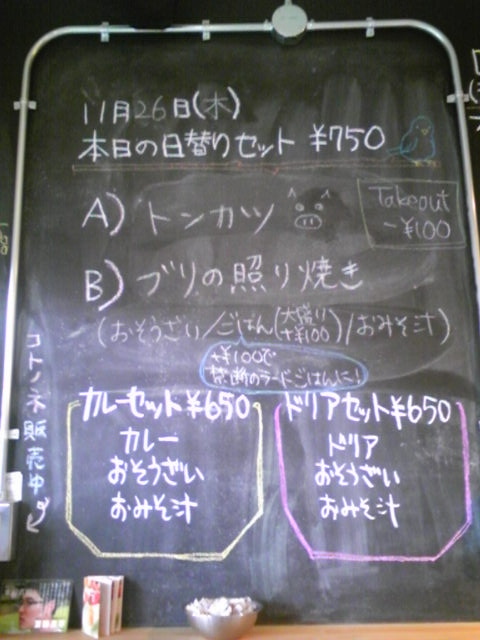 11月26日(木)
本日の日替りセット ¥750
A) トンカツ
Takeout
-¥100
B) ブリの照り焼き
(おそうざい/ごはん(大盛り+¥100)/おみそ汁)
+¥100で
禁断のラードごはんに!
カレーセット¥650
カレー
おそうざい
おみそ汁
ドリアセット¥650
ドリア
おそうざい
おみそ汁
コトノネ販売中